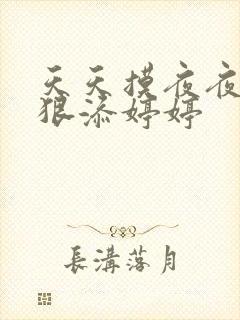 天天摸夜夜
狠添婷婷
長溝落月